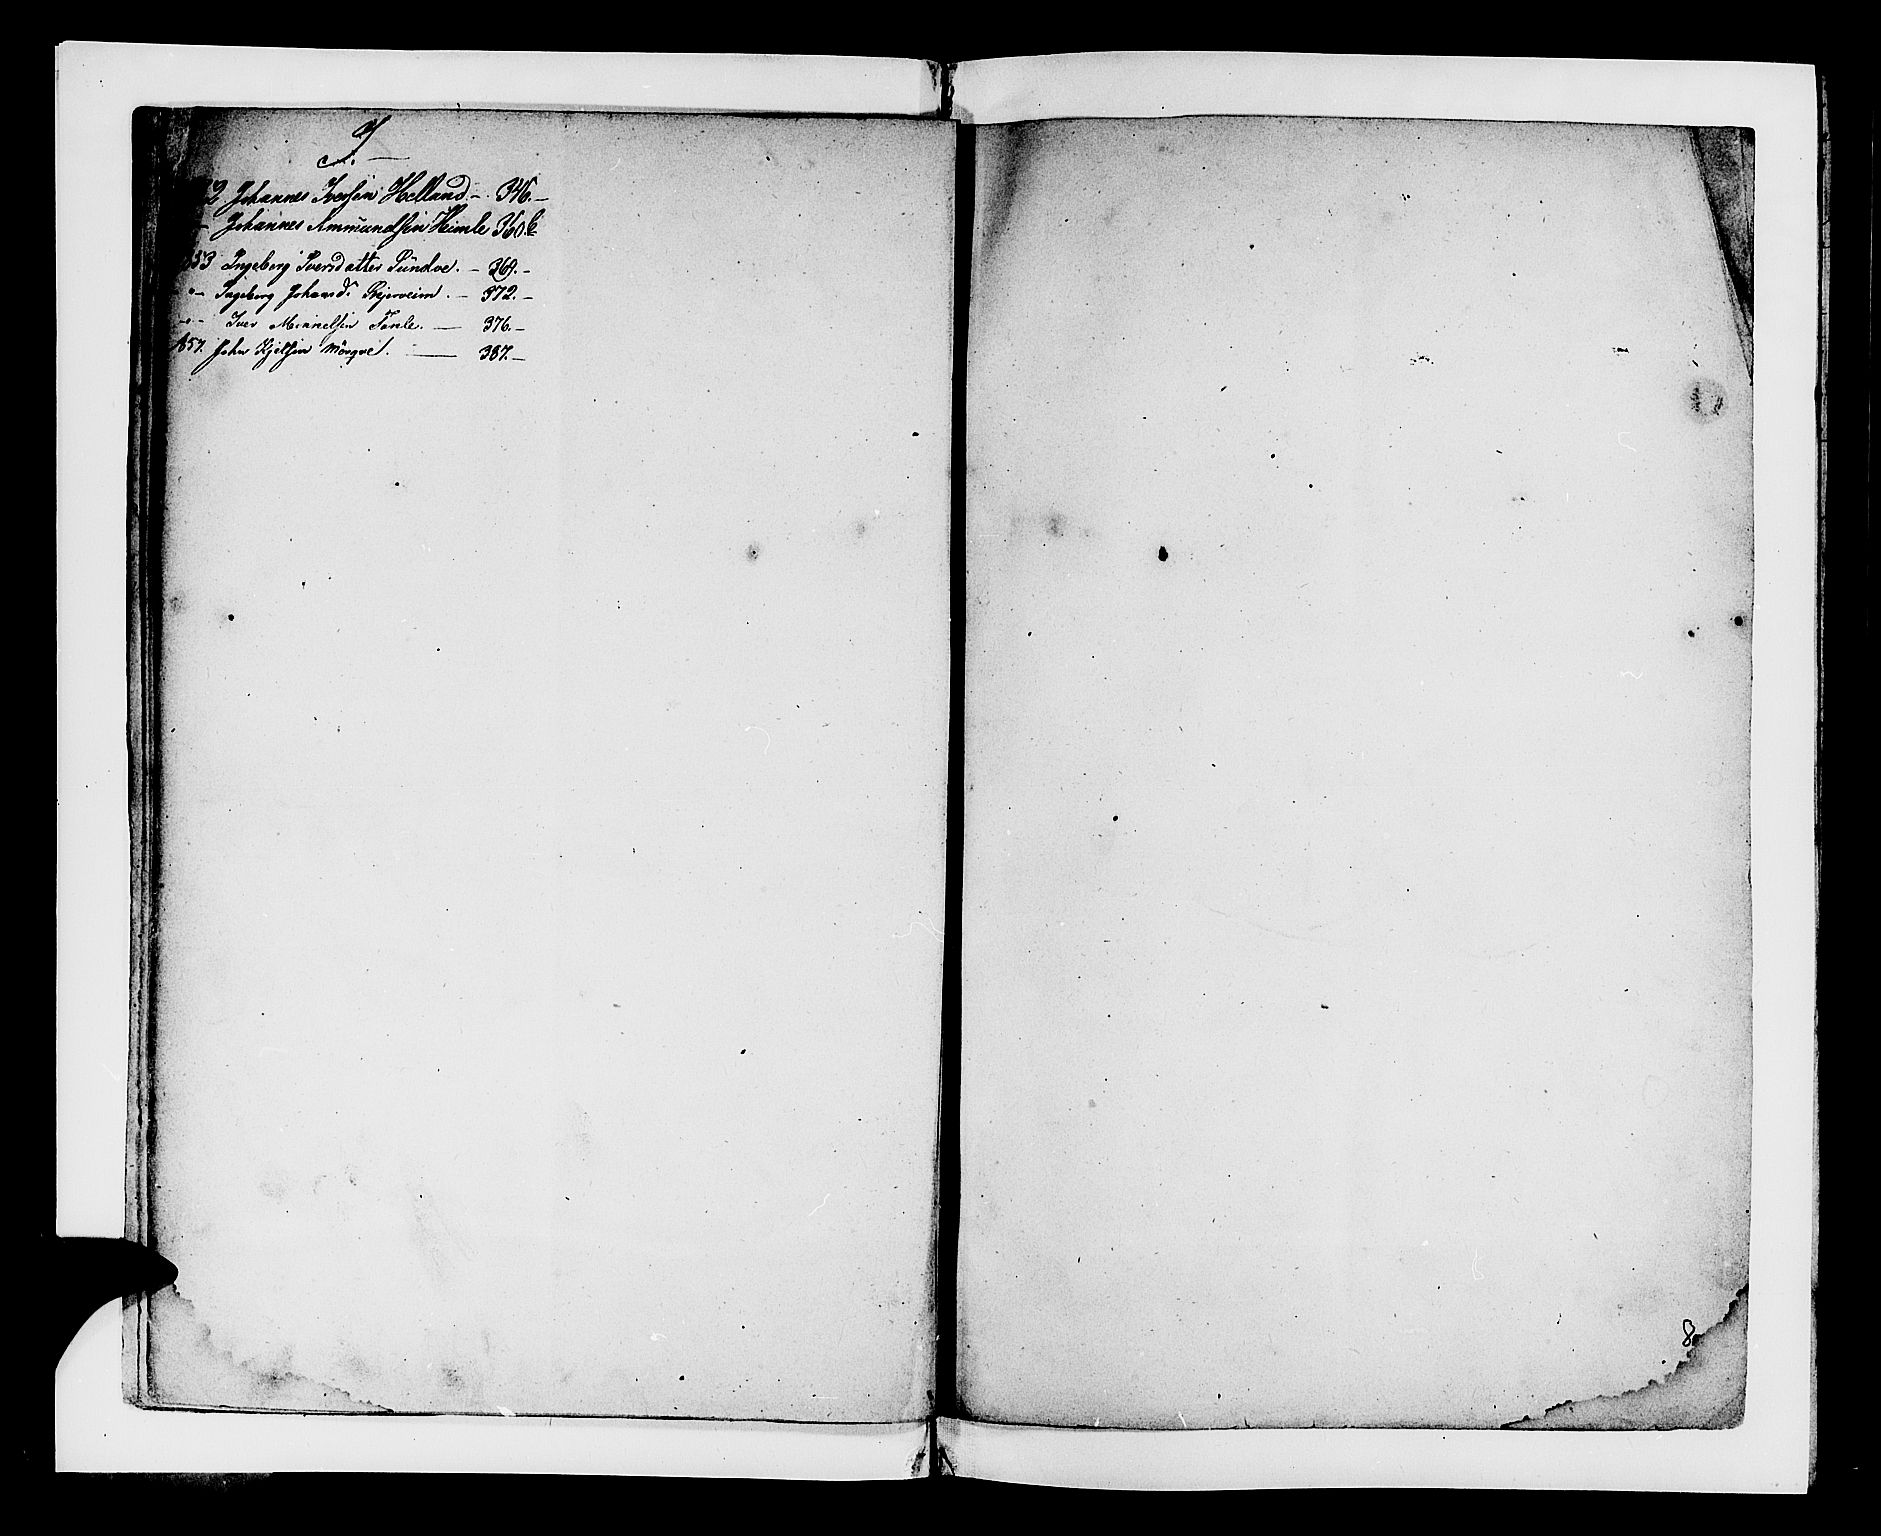 J.
52 Johannes Iversen Helland. – 346. –
– Johannes Ammundsen Himle 360.b
853 Ingeborg Iversdatter Sundve. – 369. –
"– Ingeborg Johansd. – 372. –
–"– Iver Finle. — 376. –
857. John Kjelsen Mörqve. — 387. –
8